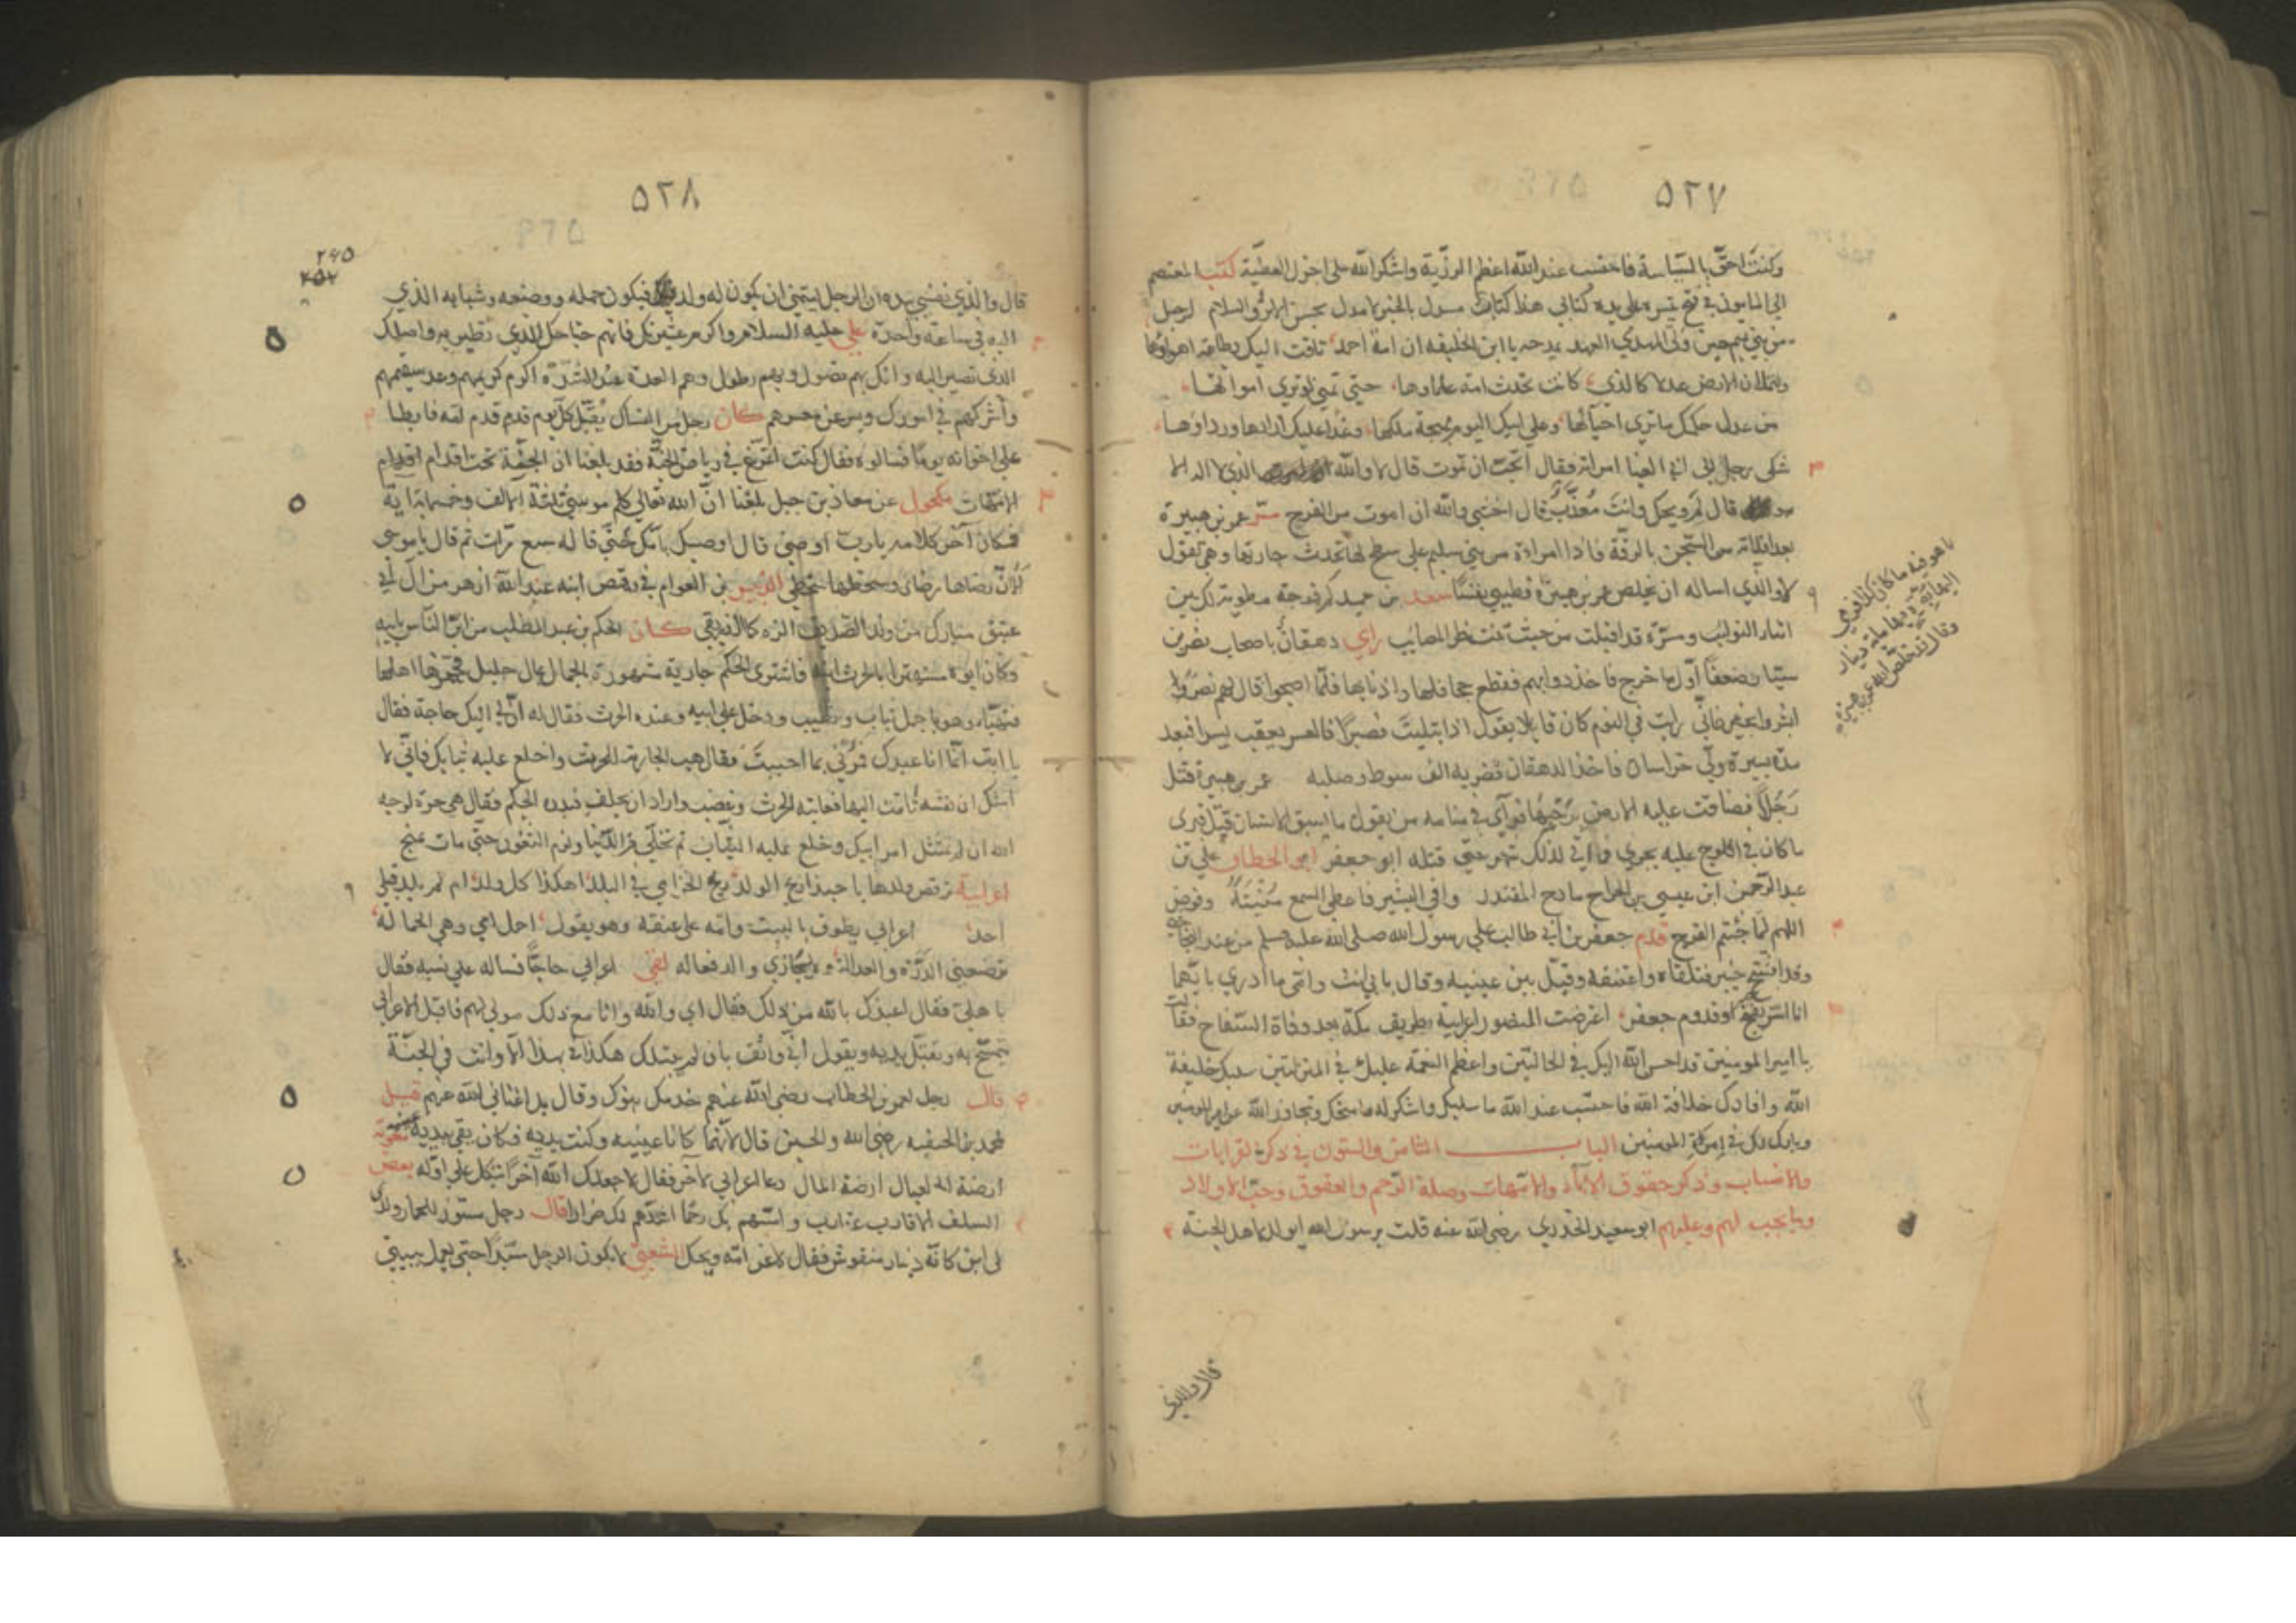 ٥٢٧
وكنت احق بالسياسة فاحتسب عند الله اعظم الرزية واشكر الله على اجزل العطية كتب المعتصم
الى المامون في فتح تيسر على يده كتابي هذا كتاب بالخبر لا مدل بحسن الاثر والسلام لرجل
من بني تميم حين ولى المهدي العهد يمدحه يا ابن الخليفة ان امة احمد تاقت اليك بطاعة اهواؤها
ولتملان الارض عدلا كالذي كانت تحدث امة علماؤها حتى تمنى لو ترى امواتها
من عدل حكمك ما ترى احياؤها وعلى ابيك اليوم بهجة ملكها وغدا عليك ازارها ورداؤها
شكى رجل الى ابي العينا امراته فقال اتحب ان تموت قال لا والله الذي لا اله الا
هو قال لم ويحك وانت معذب قال اخشى والله ان اموت من الفرح ستر عمر بن هبيرة
بعد افلاته من السجن بالرقة فاذا امراة من بني سليم على سطح لها تحدث جارتها وهي تقول
لا والذي اساله ان يخلص عمر بن هبيرة فطيبي نفسا سعد بن حميد كم فرحة مطوية لك بين
اثناء النوائب ومسرة قد اقبلت من حيث تنتظر المصائب راى دهقان باصحاب نصر بن
سيار ضعفا اول ما خرج فاخذ دوابهم فقطع جحافلها واذنابها فلما اصبحوا قال لهم نصر
ابشروا بخير فاني رايت في النوم كان قائلا يقول اذا ابتليت فصبرا فالعسر يعقب يسرا فبعد
مدة يسيرة ولي خراسان فاخذ الدهقان فضربه الف سوط وصلبه عمر بن هبيرة قتل
رجلا فضاقت عليه الارض برحبها فراى في منامه من يقول ما يسبق الانسان قيد فترى
ما كان في اللوح عليه يجري قتله ابو جعفر ابو الخطاب علي بن
عبد الرحمن ابن عيسى بن الجراح مادح المقتدر وافى البشير فاعطى السمع منيته وفوض
اللهم لما جئتم الفرج قدم جعفر بن ابي طالب على رسول الله صلى الله عليه وسلم من عند النجاشي
وقد افتتح خيبر فتلقاه واعتنقه وقبل بين عينيه وقال بابي انت وامي ما ادري بايهما
انا اسر بفتح خيبر او قدوم جعفر اعرضت المنصور اعرابية بطريق مكة بعد وفاة السفاح فقالت
يا امير المومنين قد احسن الله اليك في الحالتين واعظم النعمة عليك في المنزلتين سلبك خليفة
الله وافادك خلافة الله فاحتسب عند الله ما سلبك واشكر له ما منحك وتجاوز الله عن امير المومنين
وبارك لك في امرة المومنين الباب الثامن والستون في ذكر القرابات
والانساب وذكر حقوق الاباء والامهات وصلة الرحم والعقوق وحب الاولاد
وما يجب لهم وعليهم ابو سعيد الخدري رضى الله عنه قلت يرسول الله ايولد لاهل الجنة
ما هو فيه ما كان كذا فرمى
اليها بصرة فيها مائة دينار
وقال قد خلص الله عمر بن هبيرة
قال والذي
٥٢٨
٢٩٥
٢٥٢
قال والذي نفسي بيده ان الرجل ليتمنى ان يكون له ولد فيكون حمله ووضعه وشبابه الذي
اليه في ساعة واحدة علي عليه السلام واكرم عشيرتك فانهم جناحك الذي تطير به واصلك
الذي تصير اليه وانك بهم تصول وبهم تطول وهم العدة عند الشدة اكرم كريمهم وعد سقيمهم
واشركهم في امورك ويسر عن معسرهم كان رجل من النساك يقبل كل يوم قدم امه فابطا
على اخوانه يوما فسالوه فقال كنت اتمرغ في رياض الجنة فقد بلغنا ان الجنة تحت اقدام
الامهات مكحول عن معاذ بن جبل بلغنا ان الله تعالى كلم موسى ثلثة الاف وخمسماية اية
فكان آخر كلامه يارب اوصني قال اوصيك بامك حتى قاله سبع مرات ثم قال يا موسى
الا ان رضاها رضائ وسخطها سخطي الزبير بن العوام في رقص ابنه عبد الله ازهر من ال ابي
عتيق مبارك من ولد الصديق الذه كالذ ريقي كان الحكم بن عبد المطلب من ابر الناس بابيه
وكان ابوه مستهترا بالحرث ابنه فاشترى الحكم جارية مشهورة بالجمال بمال جليل فجهزها اهلها
فتهيا وهو باجمل ثياب وطيب ودخل على ابيه وعنده الحرث فقال له ان لي اليك حاجة فقال
يا ابت انما انا عبدك فمرني بما احببت فقال هب الجارية للحرث واخلع عليه ثيابك فاني لا
اشك ان نفسه تاقت اليها فعاتبه الحرث وغضب واراد ان يحلف فبدره الحكم فقال هي حرة لوجه
الله ان لم تمتثل امر ابيك وخلع عليه الثياب ثم تخلى من الدنيا ولزم الثغور حتى مات بمنبج
اعرابية ترقص ولدها يا حبذا ريح الولد ريح الخزامي في البلد اهكذا كل ولد ام لم يلد قبلي
احد اعرابي يطوف بالبيت وامه على عنقه وهو يقول احمل امي وهي الحمالة
ترضعني الدرة والعلالة ولا يجازى والد فعاله لقي اعرابي حاجا فساله على نسبه فقال
باهلي فقال اعيذك بالله من ذلك فقال اي والله وانا مع ذلك مولى لهم فاقبل الاعرابي
يتمسح به ويقبل يديه ويقول اني واثق بان لم يبتلك هكذا في بهذا الا وانت في الجنة
قال رجل لعمر بن الخطاب رضى الله عنهم خدمك بنوك وقال بل اغناني الله عنهم قيل
لمحمد بن الحنفيه رضى الله والحسين قال لانهما كانا عينيه وكنت يديه فكان يقي بيديه
ارضة العيال ارضة المال دعا اعرابي لاخر فقال لا جعلك الله آخرا يتكل على اوله بعض
السلف الاقارب عقارب وامسهم بك رحما اشدهم لك ضرارا قال رجل
لي ابن كانه دينار منقوش فقال لاعز امه ويحك الشعبي لا يكون الرجل سيدا حتى يعمل ببيتي